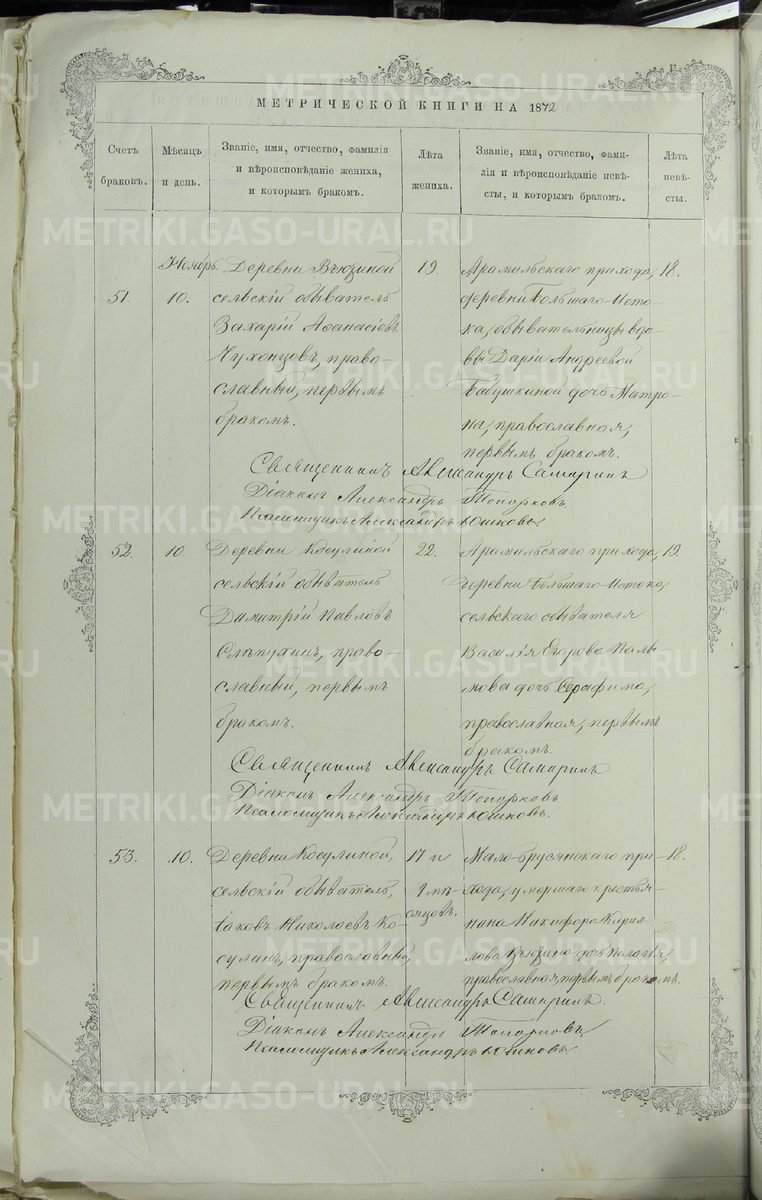 МЕТРИЧЕСКОЙ КНИГИ НА 1872
Счетъ браковъ.
Мѣсяцъ и день.
Званіе, имя, отчество, фамилія
и вѣроисповѣданіе жениха,
и которымъ бракомъ.
Лѣта жениха.
Званіе, имя, отчество, фами-
лія и вѣроисповѣданіе невѣ-
сты, и которымъ бракомъ.
Лѣта невѣ-
сты.
51.
Ноябрь.
10.
Деревни Вьюзиной
сельскій обыватель
Захарій Аѳанасіевъ
Чухонцовъ, право-
славный, первымъ
бракомъ.
19.
Арамильскаго прихода,
деревни Большаго-Исто-
ка, обывательницы вдо-
вы Даріи Андреевой
Бабушкиной дочь Матро-
на, православная,
первымъ бракомъ.
18.
Священникъ Александръ Самаринъ
Діаконъ Александръ Топорковъ.
Псаломщикъ Александръ Конновъ.
52.
10.
Деревни Косулиной
сельскій обыватель
Димитрій Павловъ
Слепухинъ, право-
славный, первымъ
бракомъ.
22.
Арамильскаго прихода,
деревни Большаго-Истока,
сельскаго обывателя
Василія Егорова
дочь Серафима,
православная, первымъ
бракомъ.
19.
Священникъ Александръ Самаринъ
Діаконъ Александръ Топорковъ.
Псаломщикъ Александръ Конновъ.
53.
10.
Деревни Косулиной,
сельскій обыватель,
Іаковъ Николаевъ Ко-
сулинъ, православный,
первымъ бракомъ.
17 и
9 мѣ-
сяцовъ.
Мало-брусянскаго при-
хода, умершаго крестья-
нина Никифора Кирил-
лова дочь Пелагія,
православная, первымъ бракомъ.
18.
Священникъ Александръ Самаринъ.
Діаконъ Александръ Топорковъ.
Псаломщикъ Александръ Конновъ.
METRIKI.GASO-URAL.RU